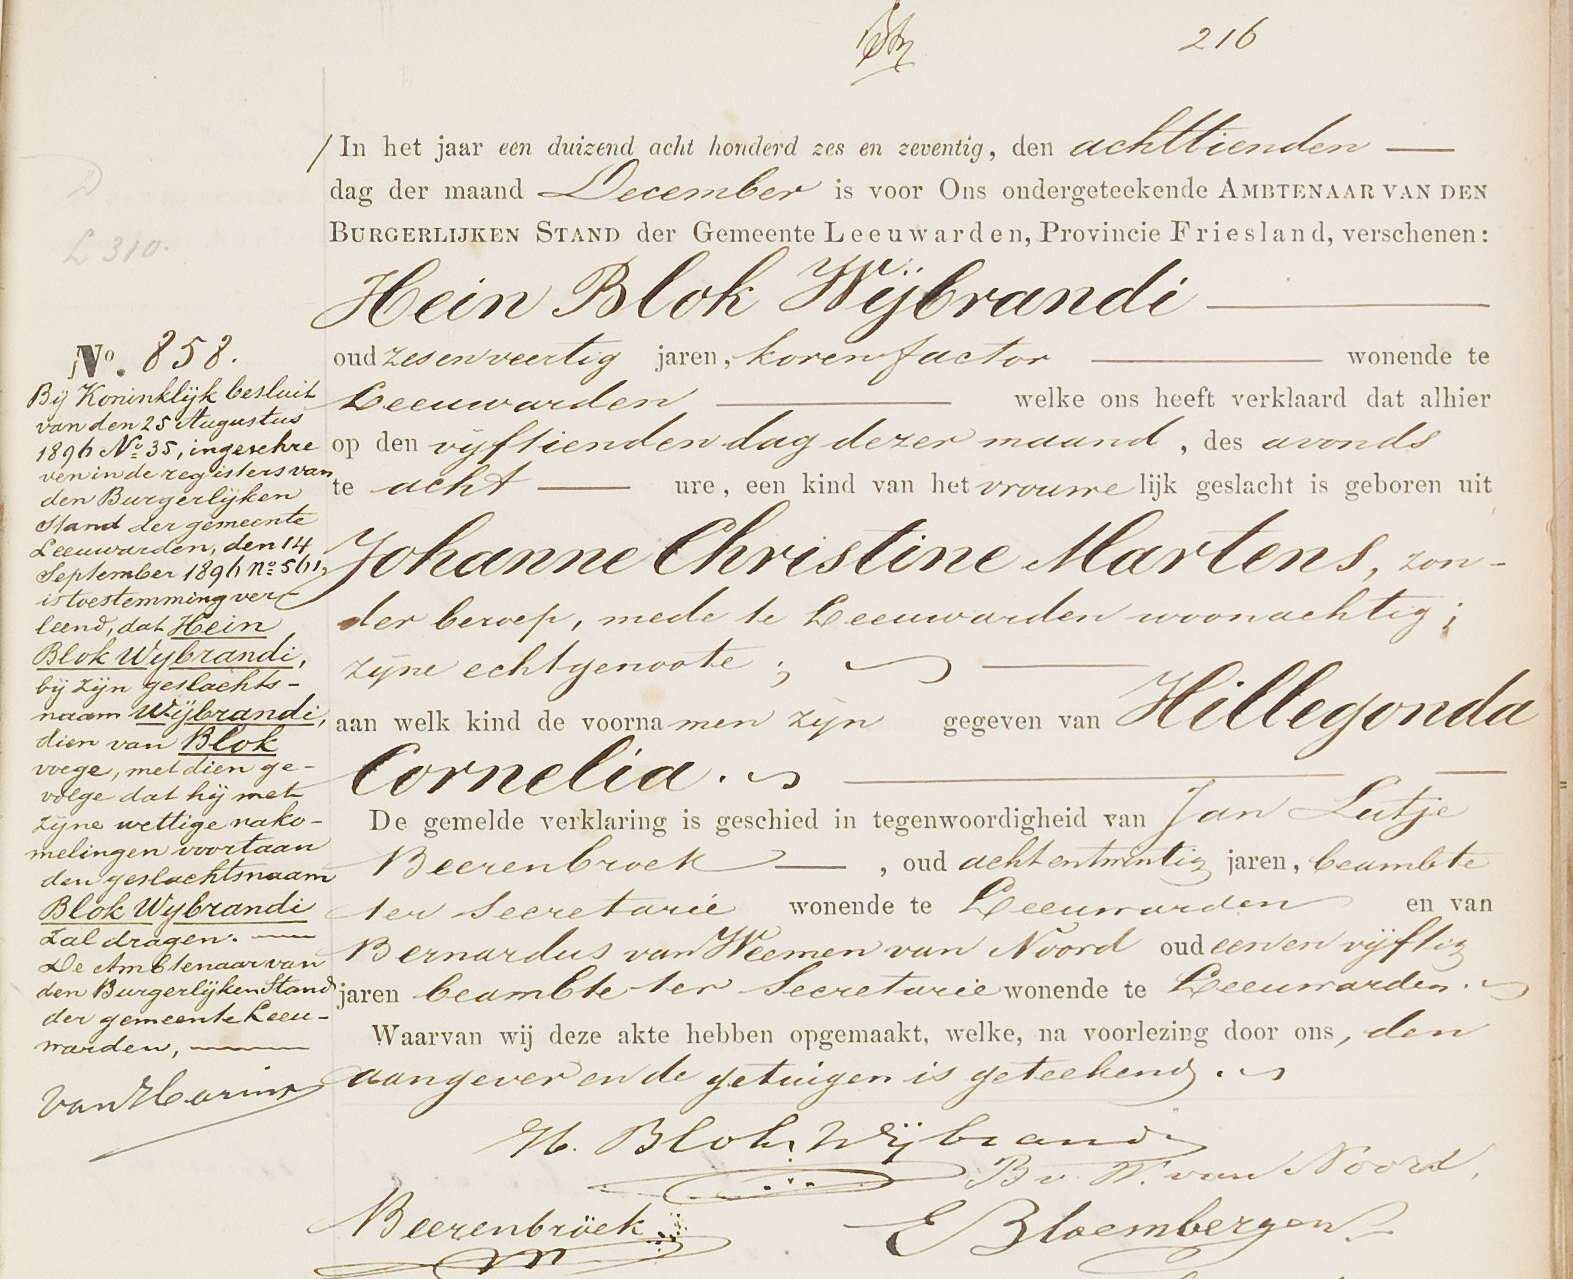 216
In het jaar een duizend acht honderd zes en zeventig, den achttienden
dag der maand December is voor Ons ondergeteekende AMBTENAAR VAN DEN
BURGERLIJKEN STAND der Gemeente Leeuwarden, Provincie Friesland, verschenen:
Hein Blok Wijbrandi
oud zesenveertig jaren, korenfactor wonende te
Leeuwarden welke ons heeft verklaard dat alhier
op den vijftienden dag dezer maand, des avonds
te acht ure, een kind van het vrouwelijk geslacht is geboren uit
Johanne Christine Martens, zon-
der beroep, mede te Leeuwarden woonachtig;
zijne echtgenoote;
aan welk kind de voornamen zijn gegeven van Hillegonda
Cornelia.
De gemelde verklaring is geschied in tegenwoordigheid van Jan Lutje
Beerenbroek, oud achtentwintig jaren, beambte
ter Secretarie wonende te Leeuwarden en van
Bernardus van Weemen van Noord oud eenen vijftig
jaren beambte ter Secretarie wonende te Leeuwarden.
Waarvan wij deze akte hebben opgemaakt, welke, na voorlezing door ons, den
aangever en de getuigen is geteekend.
H. Blok Wijbrandi
B v W. van Noord,
Beerenbröek
E Bloembergen
L 310.
No. 858.
Bij Koninklijk besluit
van den 25 Augustus
1896 No 35, ingeschre
ven in de registers van
den Burgerlijken
Stand der gemeente
Leeuwarden, den 14
September 1896 no 561,
is toestemming ver-
leend, dat Hein
Blok Wijbrandi,
bij zijn geslachts-
naam Wijbrandi,
dien van Blok
voege, met dien ge-
volge dat hij met
zijne wettige nako-
melingen voortaan
den geslachtsnaam
Blok Wijbrandi
zal dragen.
De Ambtenaar van
den Burgerlijken Stand
der gemeente Leeu-
warden,